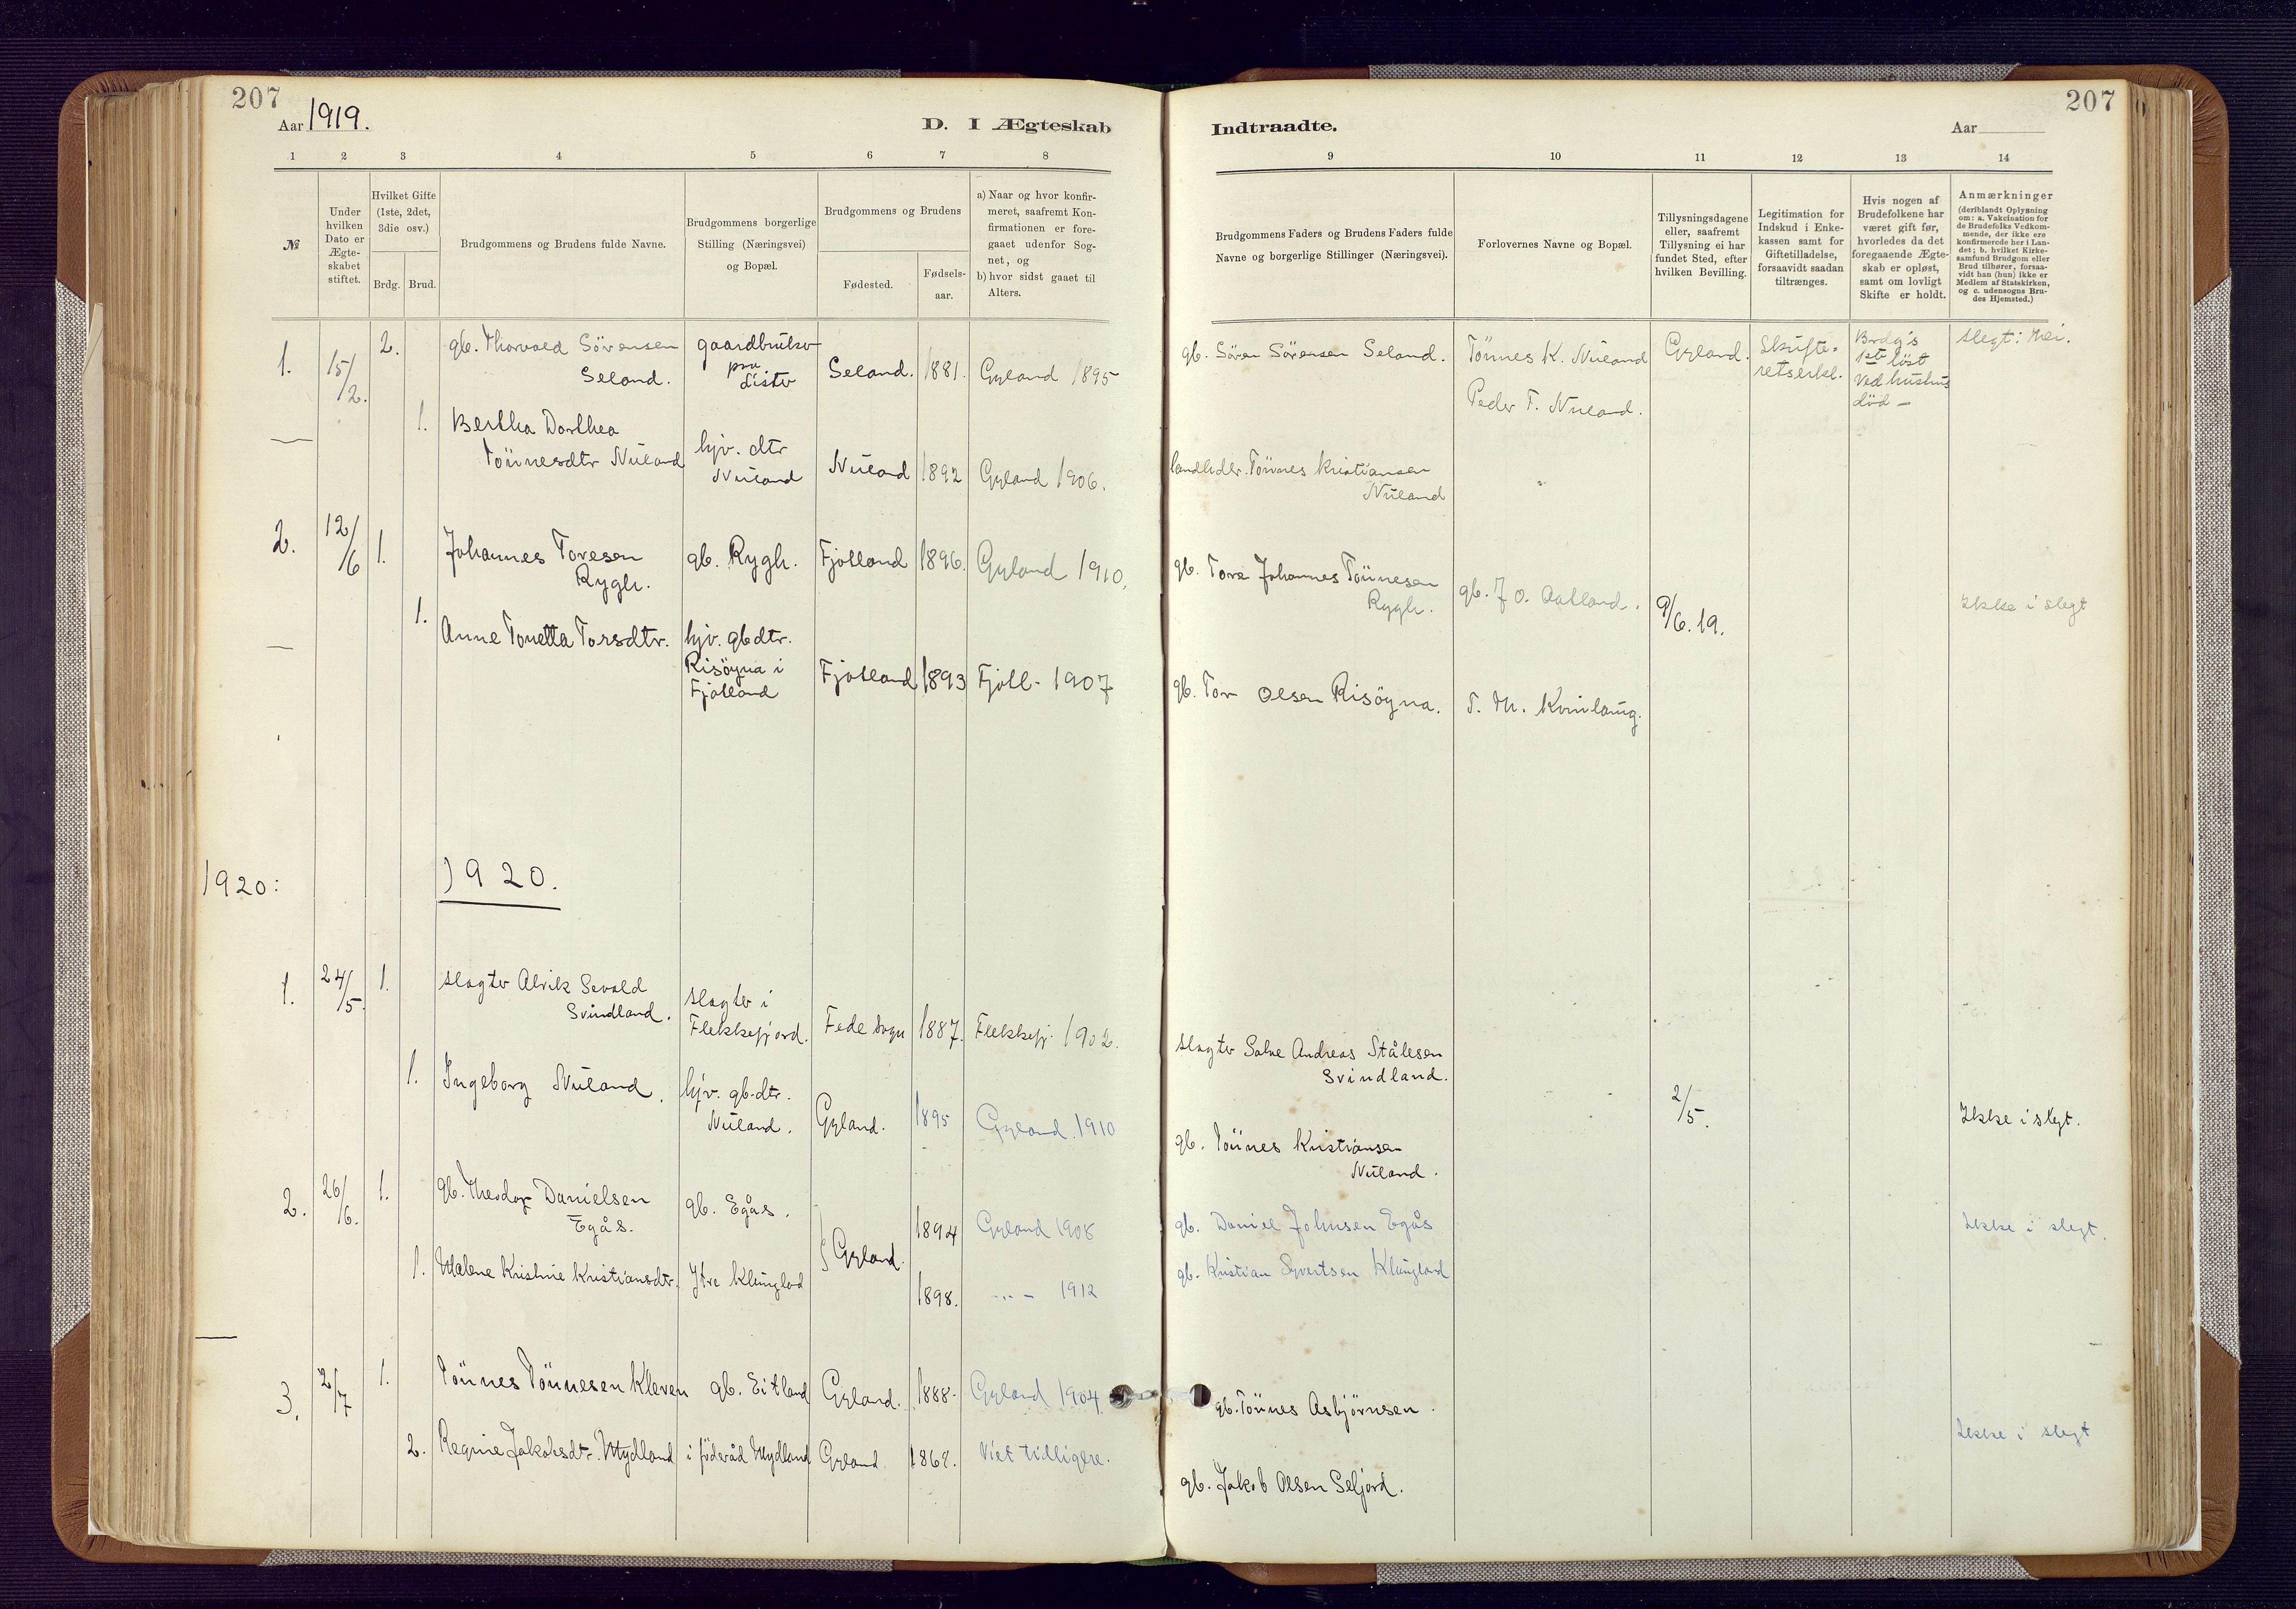 207
Aar 1919.
D. I Ægteskab
1 2 3 4 5 6 7 8
№
Under hvilken Dato er Ægte-skabet stiftet.
Hvilket Gifte (1ste, 2det, 3die osv.)
Brdg. Brud.
Brudgommens og Brudens fulde Navne.
Brudgommens borgerlige Stilling (Næringsvei) og Bopæl.
Brudgommens og Brudens
Fødested.
Fødsels-aar.
a) Naar og hvor konfir-
meret, saafremt Kon-
firmationen er fore-
gaaet udenfor Sog-
net, og
b) hvor sidst gaaet til
Alters.
1. 15/2. 2. gb. Thorvald Sörensen gaardbruker
Seland. paa Lista Seland. 1881. Gyland 1895
1. Bertha Dorthea
Tönnesdtr Nuland hjv. dtr
Nuland Nuland 1892 Gyland 1906.
2. 12/6 1. Johannes Toresen
Rygh. gb. Rygh. Fjotland 1896. Gyland 1910.
1. Anne Tonetta Torsdtr. hjv. gbdtr.
Risöyna i
Fjotland Fjotland 1893 Fjotl- 1907
1920: 1920.
1. 24/5. 1. slagter Alrik Sevald
Svindland. slagter i
Flekkefjord. Fede sogn 1887. Flekkefj. 1902.
1. Ingeborg Nuland. hjv. gb.dtr.
Nuland. Gyland. 1895 Gyland. 1910
2. 26/6. 1. gb. Theodor Danielsen
Egås. gb. Egås. 1894 Gyland 1908
} Gyland.
1. Malene Kristine Kristiansdtr. Ytre Klungland 1898. -"- 1912
3. 2/7 1. Tönnes Tönnesen Kleven gb. Eitland Gyland. 1888- Gyland 1904.
2. Regine Jakobsdtr. Mydland i föderåd Mydland Gyland 1868. Viet tidligere.
207
Indtraadte.
Aar
9 10 11 12 13 14
Brudgommens Faders og Brudens Faders fulde
Navne og borgerlige Stillinger (Næringsvei).
Forlovernes Navne og Bopæl.
Tillysningsdagene
eller, saafremt
Tillysning ei har
fundet Sted, efter
hvilken Bevilling.
Legitimation for
Indskud i Enke-
kassen samt for
Giftetilladelse,
forsaavidt saadan
tiltrænges.
Hvis nogen af
Brudefolkene har
været gift før,
hvorledes da det
foregaaende Ægte-
skab er opløst,
samt om lovligt
Skifte er holdt.
Anmærkninger
(deriblandt Oplysning
om: a. Vakcination for
de Brudefolks Vedkom-
mende, der ikke ere
konfirmerede her i Lan-
det; b. hvilket Kirke-
samfund Brudgom eller
Brud tilhører, forsaa-
vidt han (hun) ikke er
Medlem af Statskirken,
og c. udensogns Bru-
des Hjemsted.)
gb. Sören Sörensen Seland. Tönnes K. Nuland Gyland. Skifte-
retserkl. Brdg's
1ste löst
ved hustrus
död - slegt: Nei.
Peder T. Nuland.
Tönnes Kristiansen
Nuland
gb. Tore Johannes Tönnesen
Rygh. gb. J O. Aatland. 9/6. 19. Ikke i slegt
gb. Tor Olsen Risöyna. T. M. Kvinlaug.
slagter Salve Andreas Stålesen
Svindland.
2/5. Ikke i slegt.
gb. Tönnes Kristiansen
Nuland.
gb. Daniel Johnsen Egås Ikke i slegt.
gb. Kristian Syvertsen Klungland
gb. Tönnes Asbjörnsen.
Ikke i slegt
gb. Jakob Olsen Seljord.